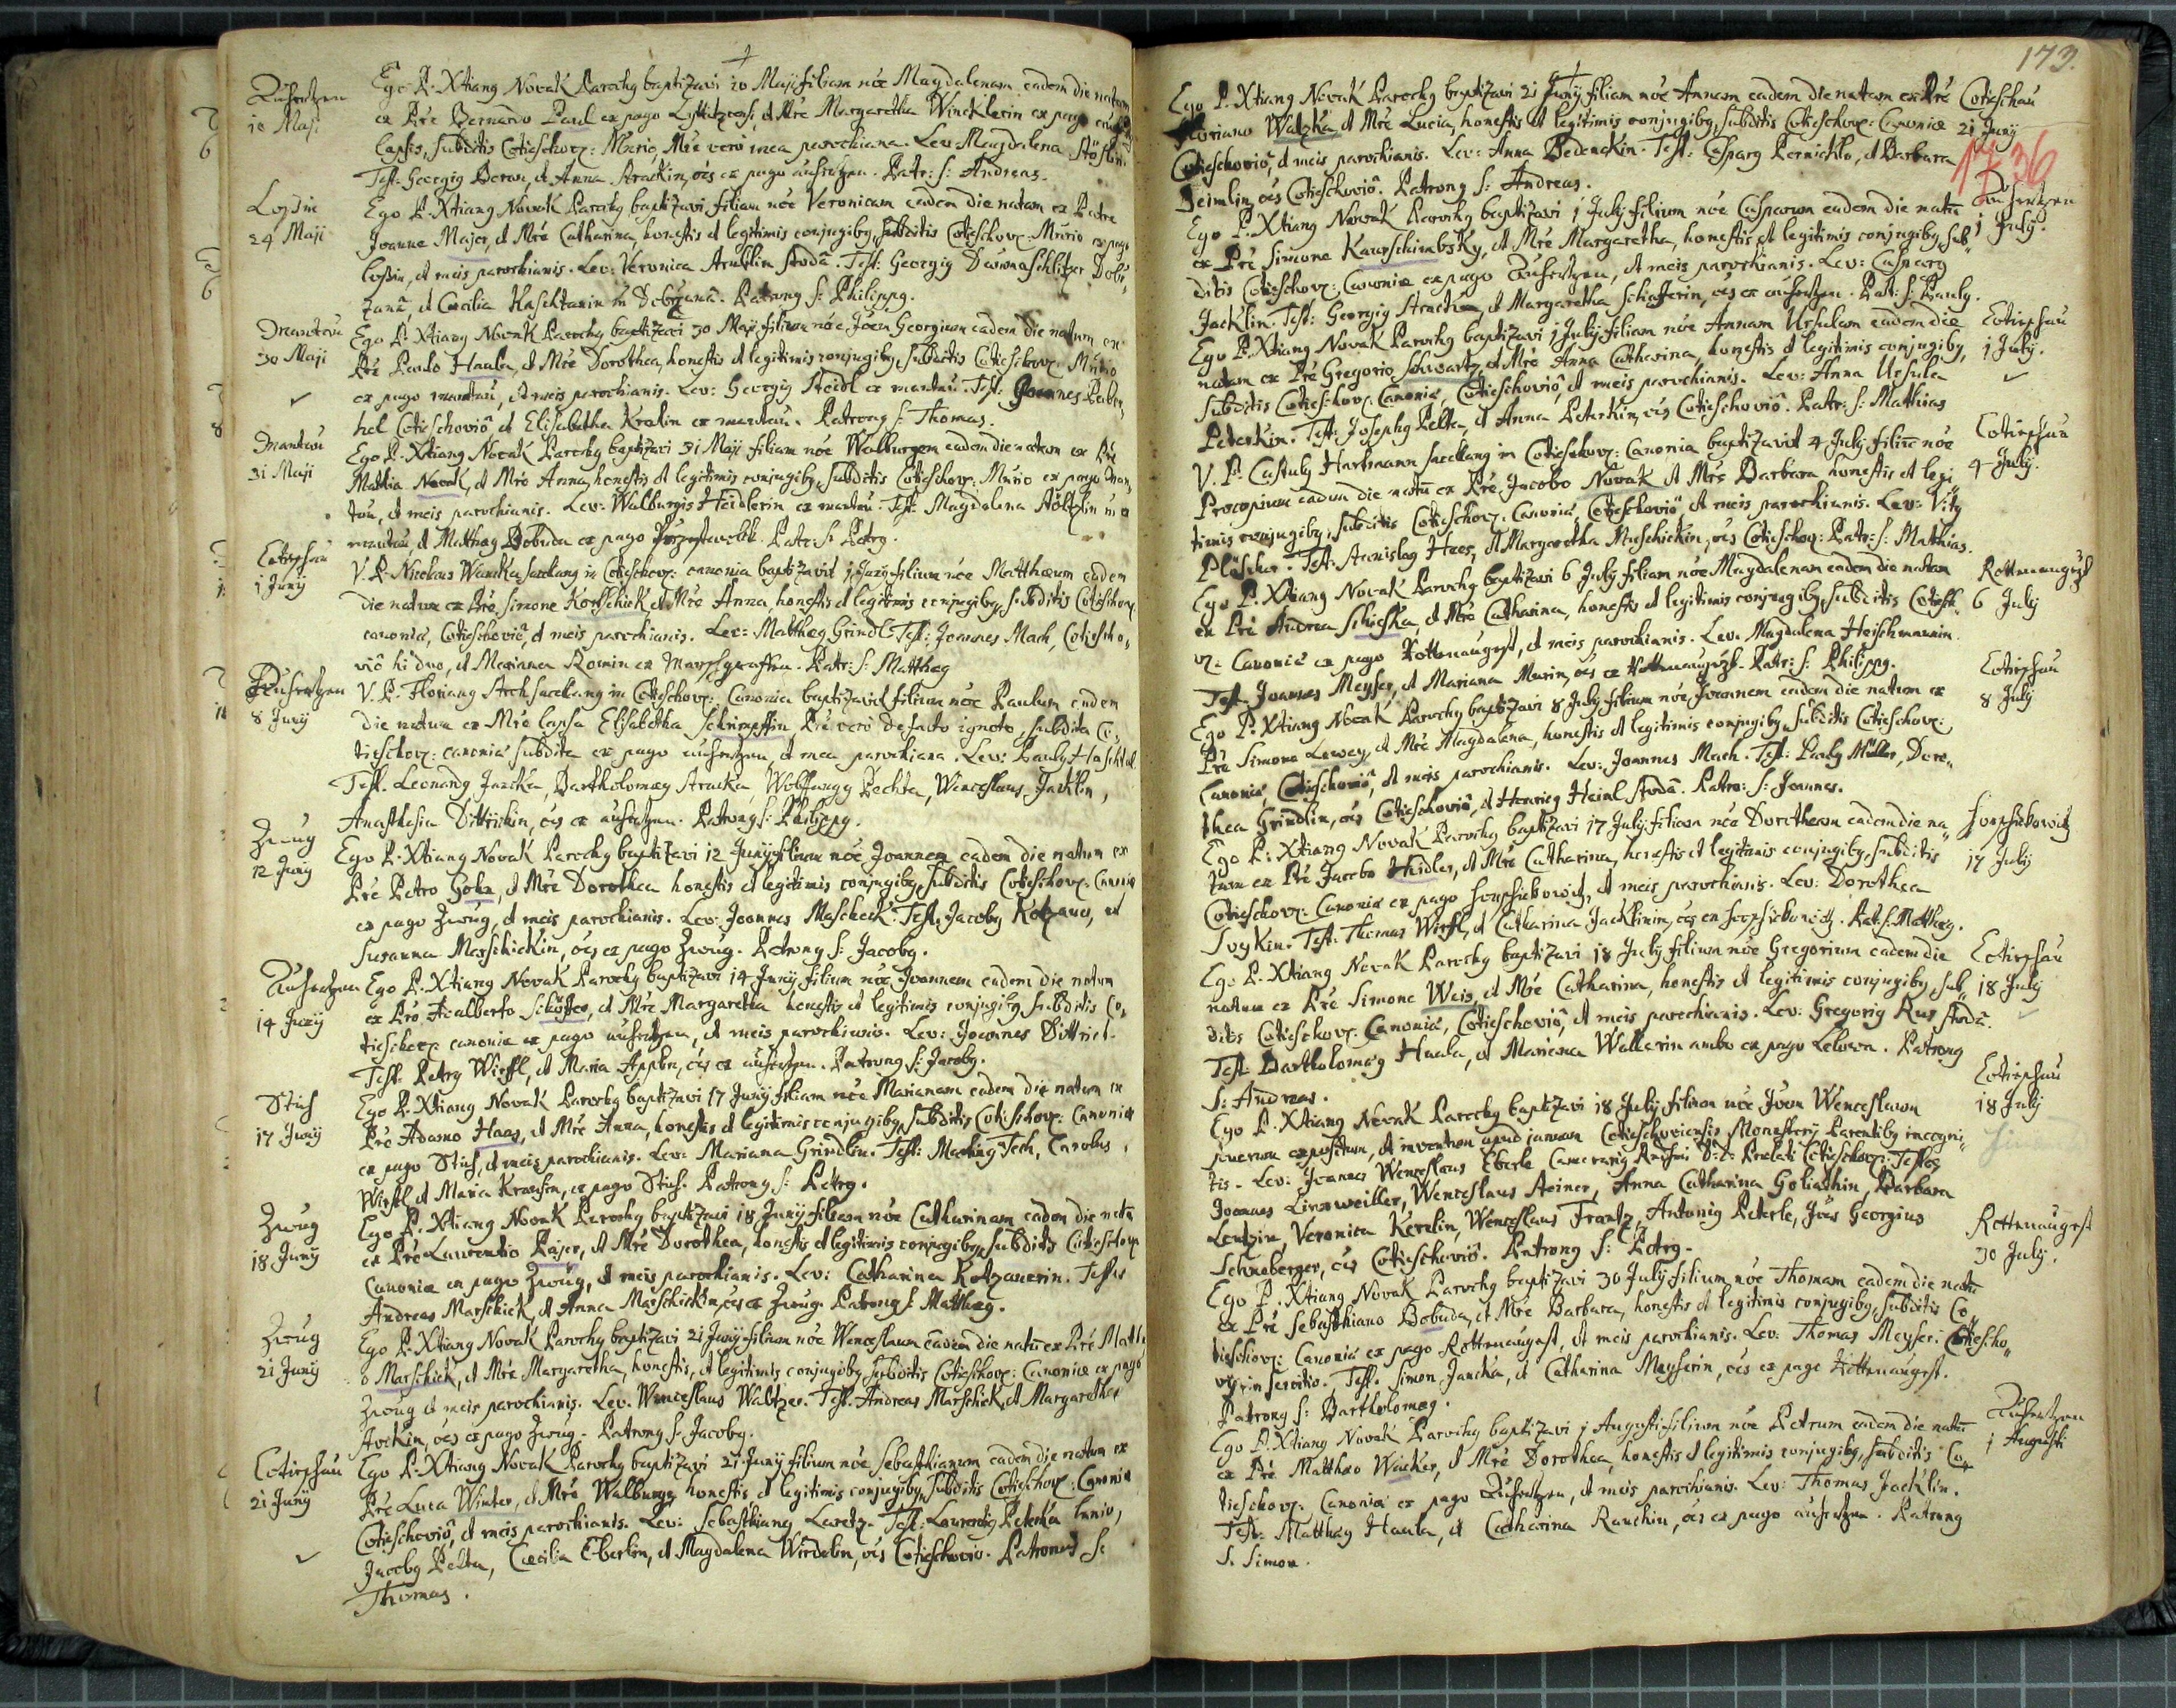 Auherzen
10 Maji
Ego P. Xtiang Novak Parochy baptizavi 10 Maji filiam noe Magdalenam eadem die natam
ex Pre Bernardo Paul ex pago et Mre Margaretha Wincklerin ex pago
lapsis, subditis Cotieschov: Mre vero mea parochiana. Lev: Magdalena
Test: Georgig Beran, et Anna oes ex pago auherzen. Patr: S: Andreas.
Lossin
24 Maji
Ego P. Xtiang Novak Parochy baptizavi filiam noe Veronicam eadem die natam ex Patre
Joanne Majer, et Mre Catharina, honestis et legitimis conjugiby, subditis Cotieschov:
Lossin, et meis parochianis. Lev: Veronica Test: Georgig
et Cæcilia in Patrong S: Philippg.
Mantau
30 Maji
Ego P. Xtiang Novak Parochy baptizavi 30 Maji filium noe Joem Georgium eadem die natum ex
Pre Paulo Haala, et Mre Dorothea, honestis et legitimis conjugiby, subditis Cotieschov:
ex pago mantau, et meis parochianis. Lev: Georgig Heidl ex mantau. Test: Joannes
Cotieschoviô et Elisabetha ex mantau. Patrong S: Thomas.
Mantau
31 Maji
Ego P. Xtiang Novak Parochy baptizavi 31 Maji filiam noe Walburgem eadem die natam ex Pre
Mathia Novak, et Mre Anna, honestis et legitimis conjugiby, subditis Cotieschov: ex pago Man-
tau, et meis parochianis. Lev: Walburgis Heidlerin ex mantau. Test: Magdalena
mantau, et Matthæg Bobuda ex pago Patr: S: Petrg.
Cotieschau
1 Junij
V. P. Nicolaus sacellang in Cotieschov: canonia baptizavit 1 Junij filium noe Matthæum eadem
die natum ex Pre Simone et Mre Anna, honestis et legitimis conjugiby, subditis Cotieschov:
canoniæ, Cotieschoviô, et meis parochianis. Lev: Matthæg Grindl. Test: Joannes Mach, Cotiescho-
viô hi duo, et Mariana ex Patr: S: Matthæg
Auherzen
8 Junij
V. P. Floriang sacellang in Cotieschov: Canonia baptizavit filium noe Paulum eadem
die natum ex Mre lapsa Elisabetha Schrimpffin, Pre vero defacto ignoto, subdita Co-
tieschov: canoniæ subdita ex pago auherzen, et mea parochiana. Lev: Paulg
Test. Leonardg Jancka, Bartholomæg Wolffgangg Pechta, Wenceslaus Jacklin,
Anasthasia Dittrichin, oes ex auherzen. Patrong S: Philippg.
Zwug
12 Junij
Ego P. Xtiang Novak Parochy baptizavi 12 Junij filium noe Joannem eadem die natum ex
Pre Petro et Mre Dorothea honestis et legitimis conjugiby, subditis Cotieschov: Canoniæ
ex pago Zwug, et meis parochianis. Lev: Joannes Maschek. Test: Jacobg Kotzauer, et
Susanna Marschickin, oes ex pago Zwug. Patrong S: Jacobg.
Auherzen
14 Junij
Ego P. Xtiang Novak Parochy baptizavi 14 Junij filium noe Joannem eadem die natum
ex Pre Adalberto et Mre Margaretha honestis et legitimis conjugiby, subditis Co-
tieschov: canoniæ ex pago auherzen, et meis parochianis. Lev: Joannes Dittrich.
Test: Petrg Wirffl, et Maria oes ex auherzen. Patrong S: Jacobg.
Stich
17 Junij
Ego P. Xtiang Novak Parochy baptizavi 17 Junij filiam noe Marianam eadem die natam ex
Pre Adamo Haas, et Mre Anna, honestis et legitimis conjugiby, subditis Cotieschov: Canoniæ
ex pago Stich, et meis parochianis. Lev: Mariana Grindlin. Test: Carolus
et Maria ex pago Stich. Patrong S: Petrg.
Zwug
18 Junij
Ego P. Xtiang Novak Parochy baptizavi 18 Junij filiam noe Catharinam eadem die natā
ex Pre Laurentio et Mre Dorothea, honestis et legitimis conjugiby, subditis Cotieschov:
Canoniæ ex pago Zwug, et meis parochianis. Lev: Catharina Kotzauerin. Testes
Andreas Marschick, et Anna Marschickin, oes ex Zwug. Patrong S: Matthæg.
Zwug
21 Junij
Ego P. Xtiang Novak Parochy baptizavi 21 Junij filium noe Wenceslaum eadem die natū ex Pre Mathi
o Marschick, et Mre Margaretha, honestis, et legitimis conjugiby, subditis Cotieschov: Canoniæ ex pago
Zwug et meis parochianis. Lev: Wenceslaus Waltzer. Test: Andreas Marschick, et Margaretha
oes ex pago Zwug. Patrong S: Jacobg.
Cotieschau
21 Junij
Ego P. Xtiang Novak Parochy baptizavi 21 Junij filium noe Sebasthianum eadem die natum ex
Pre Luca Winter, et Mre Walburga honestis et legitimis conjugiby, subditis Cotieschov: Canoniæ
Cotieschoviô, et meis parochianis. Lev: Sebasthiang Test: Laurentig
Jacobg Pelta, Cæcilia Eberlin, et Magdalena oes Cotieschoviô. Patronus S:
Thomas.
173.
Ego P. Xtiang Novak Parochy baptizavi 21 Junij filiam noe Annam eadem die natam ex Pre
Floriano Watzka, et Mre Lucia, honestis et legitimis conjugiby, subditis Cotieschov: Canoniæ
Cotieschoviô, et meis parochianis. Lev: Anna Test: Casparg et Barbara
oes Cotieschoviô. Patrong S: Andreas.
Cotieschau
21 Junij
1736
Ego P. Xtiang Novak Parochy baptizavi 1 Julij filium noe Casparum eadem die natū
ex Pre Simone et Mre Margaretha, honestis et legitimis conjugiby, sub-
ditis Cotieschov: Canoniæ ex pago Auherzen, et meis parochianis. Lev: Casparg
Jacklin. Test: Georgig et Margaretha oes ex auherzen. Patr: S: Paulg.
Auherzen
1 Julij.
Ego P. Xtiang Novak Parochy baptizavi 1 Julij filiam noe Annam Ursulam eadem die
natam ex Pre Gregorio Schwartz, et Mre Anna Catharina, honestis et legitimis conjugiby,
subditis Cotieschov: Canoniæ, Cotieschoviô, et meis parochianis. Lev: Anna Ursula
Peterkin. Test: Josephg Pelta, et Anna Peterkin, oes Cotieschoviô. Patr: S: Mathias
Cotieschau
1 Julij.
V. P. Castulg Hartmann sacellang in Cotieschov: Canonia baptizavit 4 Julij filiū noe
Procopium eadem die natū ex Pre Jacobo Novak et Mre Barbara honestis et legi-
timis conjugiby, subditis Cotieschov: Canoniæ, Cotieschoviô, et meis parochianis. Lev: Vitg
Test: Stanislag Haas, et Margaretha oes Cotieschov: Patr: S: Mathias.
Cotieschau
4 Julij.
Ego P. Xtiang Novak Parochy baptizavi 6 Julij filiam noe Magdalenam eadem die natam
ex Pre Andrea Schieska, et Mre Catharina, honestis et legitimis conjugiby, subditis Cotiesch-
ov: Canoniæ ex pago Rottenaugest, et meis parochianis. Lev: Magdalena Heischmannin.
Test. Joannes Meyser, et Mariana oes ex Rottenaugest. Patr: S: Philippg.
Rottenaugest
6 Julij
Ego P. Xtiang Novak Parochy baptizavi 8 Julij filium noe Joannem eadem die natum ex
Pre Simone et Mre Magdalena, honestis et legitimis conjugiby, subditis Cotieschov:
Canoniæ Cotieschoviô, et meis parochianis. Lev: Joannes Mach. Test: Paulg Müller, Doro-
thea Grindlin, oes Cotieschoviô, et Henricg Heinl Patro: S: Joannes.
Cotieschau
8 Julij
Ego P. Xtiang Novak Parochy baptizavi 17 Julij filiam noe Dorotheam eadem die na-
tam ex Pre Jacobo Heidler, et Mre Catharina, honestis et legitimis conjugiby, subditis
Cotieschov: Canoniæ ex pago et meis parochianis. Lev: Dorothea
Test. Thomas Wirffl, et Catharina Jacklinin, oes ex Pat: S. Matthæg.
17 Julij
Ego P. Xtiang Novak Parochy baptizavi 18 Julij filium noe Gregorium eadem die
natum ex Pre Simone Weis, et Mre Catharina, honestis et legitimis conjugiby, sub-
ditis Cotieschov: Canoniæ, Cotieschoviô, et meis parochianis. Lev: Gregorig Rus
Test: Bartholomæg Haala, et Mariana Wallerin ambo ex pago Lelowa. Patrong
S: Andreas.
Cotieschau
18 Julij
Ego P. Xtiang Novak Parochy baptizavi 18 Julij filium noe Joem Wenceslaum
puerum expositum, et inventum apud januam Cotieschoviensis Monasterij Parentiby incogni-
tis. Lev: Joannes Wenceslaus Eberle Camerarig Cotieschov: Testes
Joannes Linsweiller, Wenceslaus Anna Catharina Goliathin, Barbara
Lentzin, Veronica Wenceslaus Frantz, Antonig Peterle, Joes Georgius
Schneberger, oes Cotieschoviô. Patrong S: Petrg.
Cotieschau
18 Julij
Ego P. Xtiang Novak Parochy baptizavi 30 Julij filium noe Thomam eadem die natū
ex Pre Sebasthiano Bobuda, et Mre Barbara, honestis et legitimis conjugiby, subditis Co-
tieschov: Canoniæ ex pago Rottenaugest, et meis parochianis. Lev: Thomas Meyser Cotiescho-
vij in servitio. Test. Simon Jancka, et Catharina Meyserin, oes ex pago Rottenaugest.
Patrong S: Bartholomæg.
Rottenaugest
30 Julij.
Ego P. Xtiang Novak Parochy baptizavi 1 Augusti filium noe Petrum eadem die natū
ex Pre Matthæo et Mre Dorothea, honestis et legitimis conjugiby, subditis Co-
tieschov: Canoniæ ex pago Auherzen, et meis parochianis. Lev: Thomas Jacklin.
Test: Matthæg Haala, et Catharina Rauchin, oes ex pago auherzen. Patrong
S. Simon.
Auherzen
1 Augusti